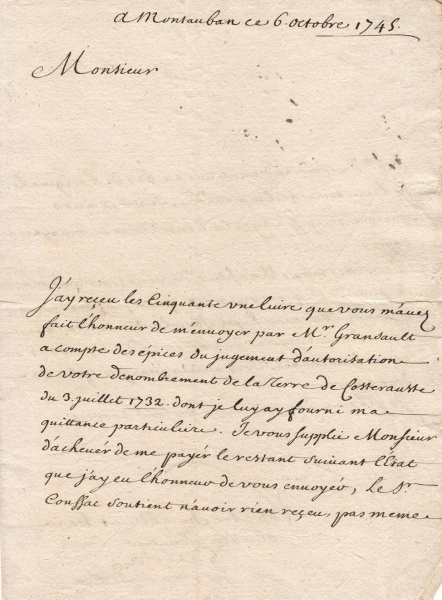 a Montauban ce 6. octobre 1745.
Monsieur
J'ay reçeu les Cinquante vne livre que vous m'auez
fait l'honneur de m'enuoyer par Mr. Gransault
a compte des épices du jugement d'autorisation
de votre denombrement de la Terre de Costerauste
du 3. juillet 1732. dont je luy ay fourni ma
quittance particuliere. Je vous supplie Monsieur
d'acheuer de me payer le restant suiuant l'Etat
que j'ay eu l'honneur de vous enuoyér, le Sr.
Coussac soutient n'auoir rien reçeu, pas meme